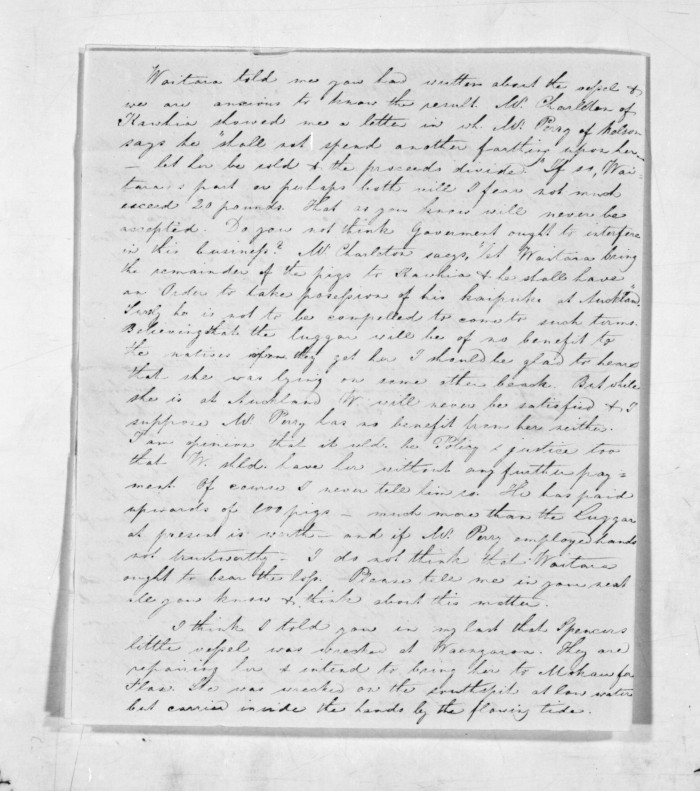 Waitara told me you had written about the vessel &
we are anxious to know the result. Mr. Charleton of
Kawhia showed me a letter in wh. Mr. Perry of Nelson
says he "shall not spend another farthing upon her –
– let her be sold & the proceeds divide." If so, Wai-
tara's part or perhaps both will I fear not much
exceed 20 pounds. That as you know will never be
accepted. Do you not think Goverment ought to interfere
in this business? Mr. Charleton says, "let Waitara bring
the remainder of the pigs to Kawhia & he shall have
an Order to take possession of his kaipuke at Auckland."
Surely he is not to be compelled to come to such terms.
Believing that the luggar will be of no benefit to
the natives when they get her I should be glad to hear
that she was lying on some other beach. But while
she is at Auckland W. will never be satisfied & I
suppose Mr. Perry has no benefit from her neither.
I am opinion that it wld. be Policy & justice too
that W. shld. have her without any further pay=
ment. Of course I never tell him so. He has paid
upwards of 100 pigs – much more than the Luggar
at present is worth – and if Mr. Perry employed hands
not trustworthy – I do not think that Waitara
ought to bear the loss. Please tell me in your next
all you know & think about this matter.
I think I told you in my last that Spencers
little vessel was wrecked at Waengaroa. They are
repairing her & intend to bring her to Mokau for
Flax. She was wrecked on the southspit at low water
but carried inside the heads by the flowing tide.